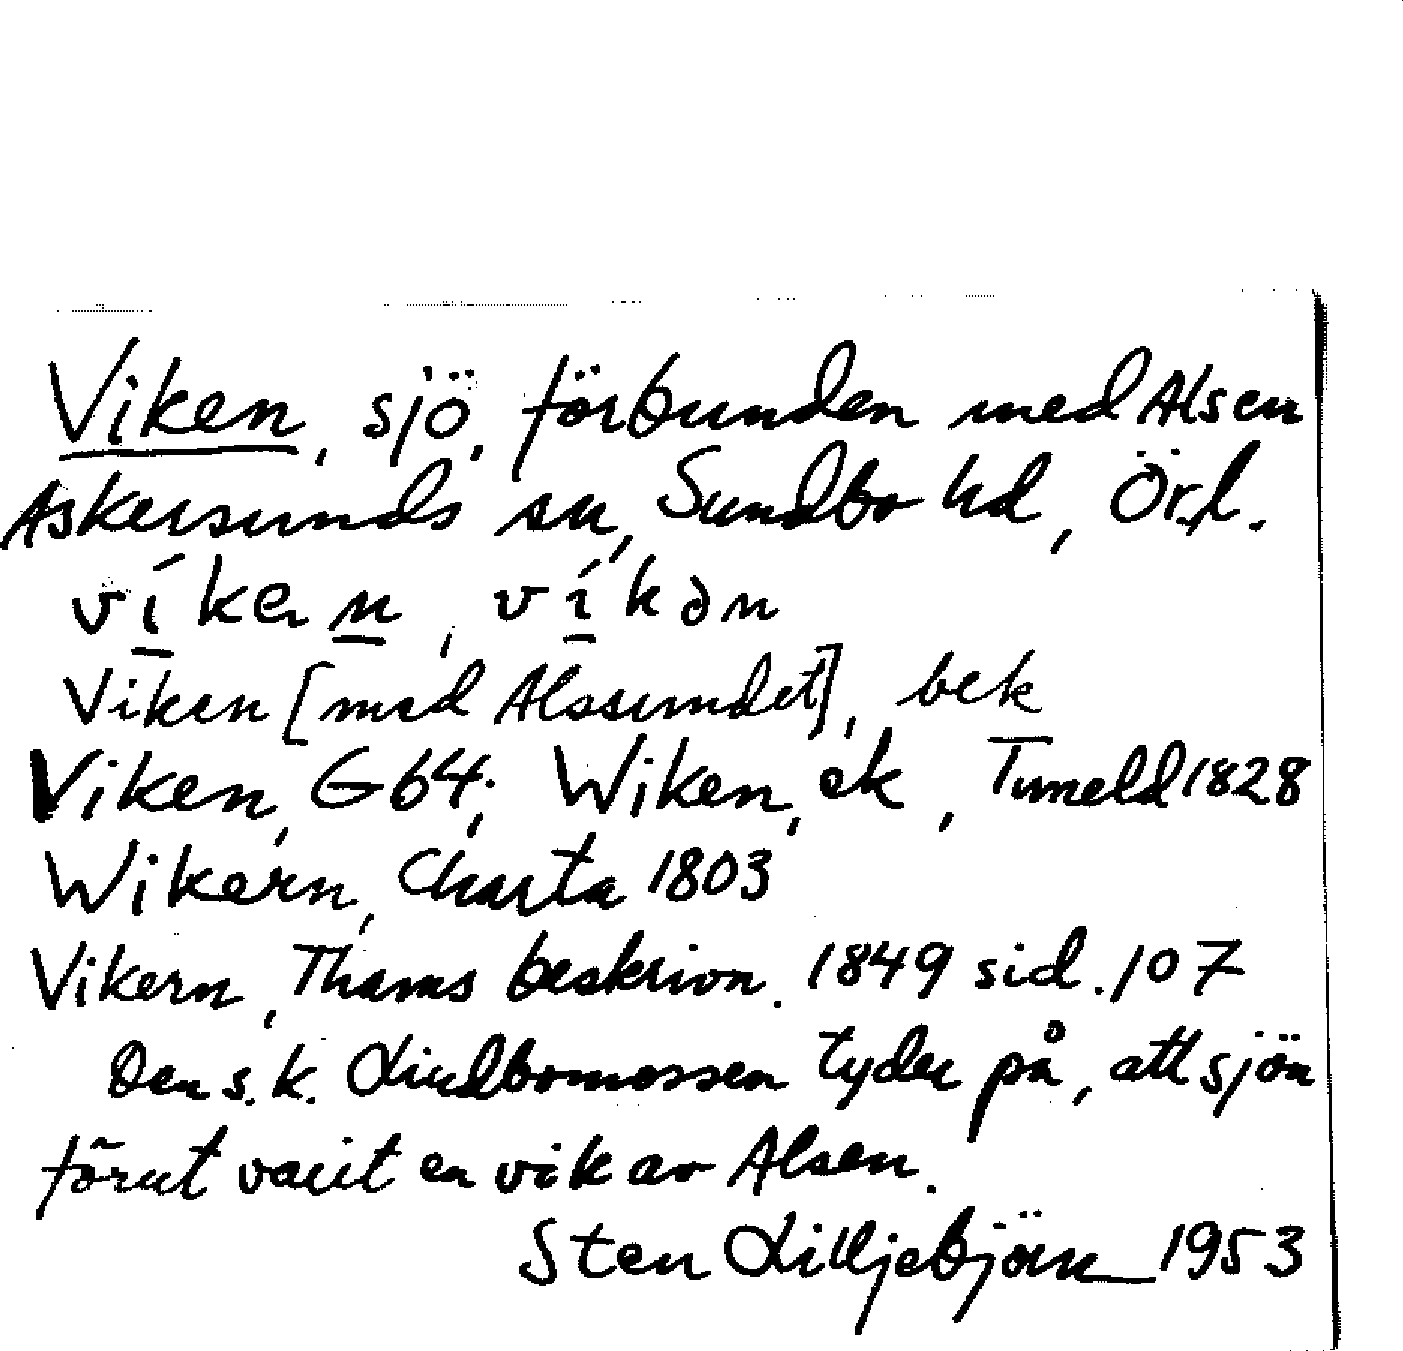 Viken, sjö, förbunden med Alsen
Askersunds sn, Sundbo hd, Ör.l.
víken, víkən
Viken [med Alssundet], bek
Viken, G64; Wiken, ek, Tuneld 1828
Wikern, Charta 1803
Vikern, Thams beskrivn. 1849 sid. 107
Den s.k. Lindbomossen tyder på, att sjön
förut varit en vik av Alsen.
Sten Lilljebjörn 1953